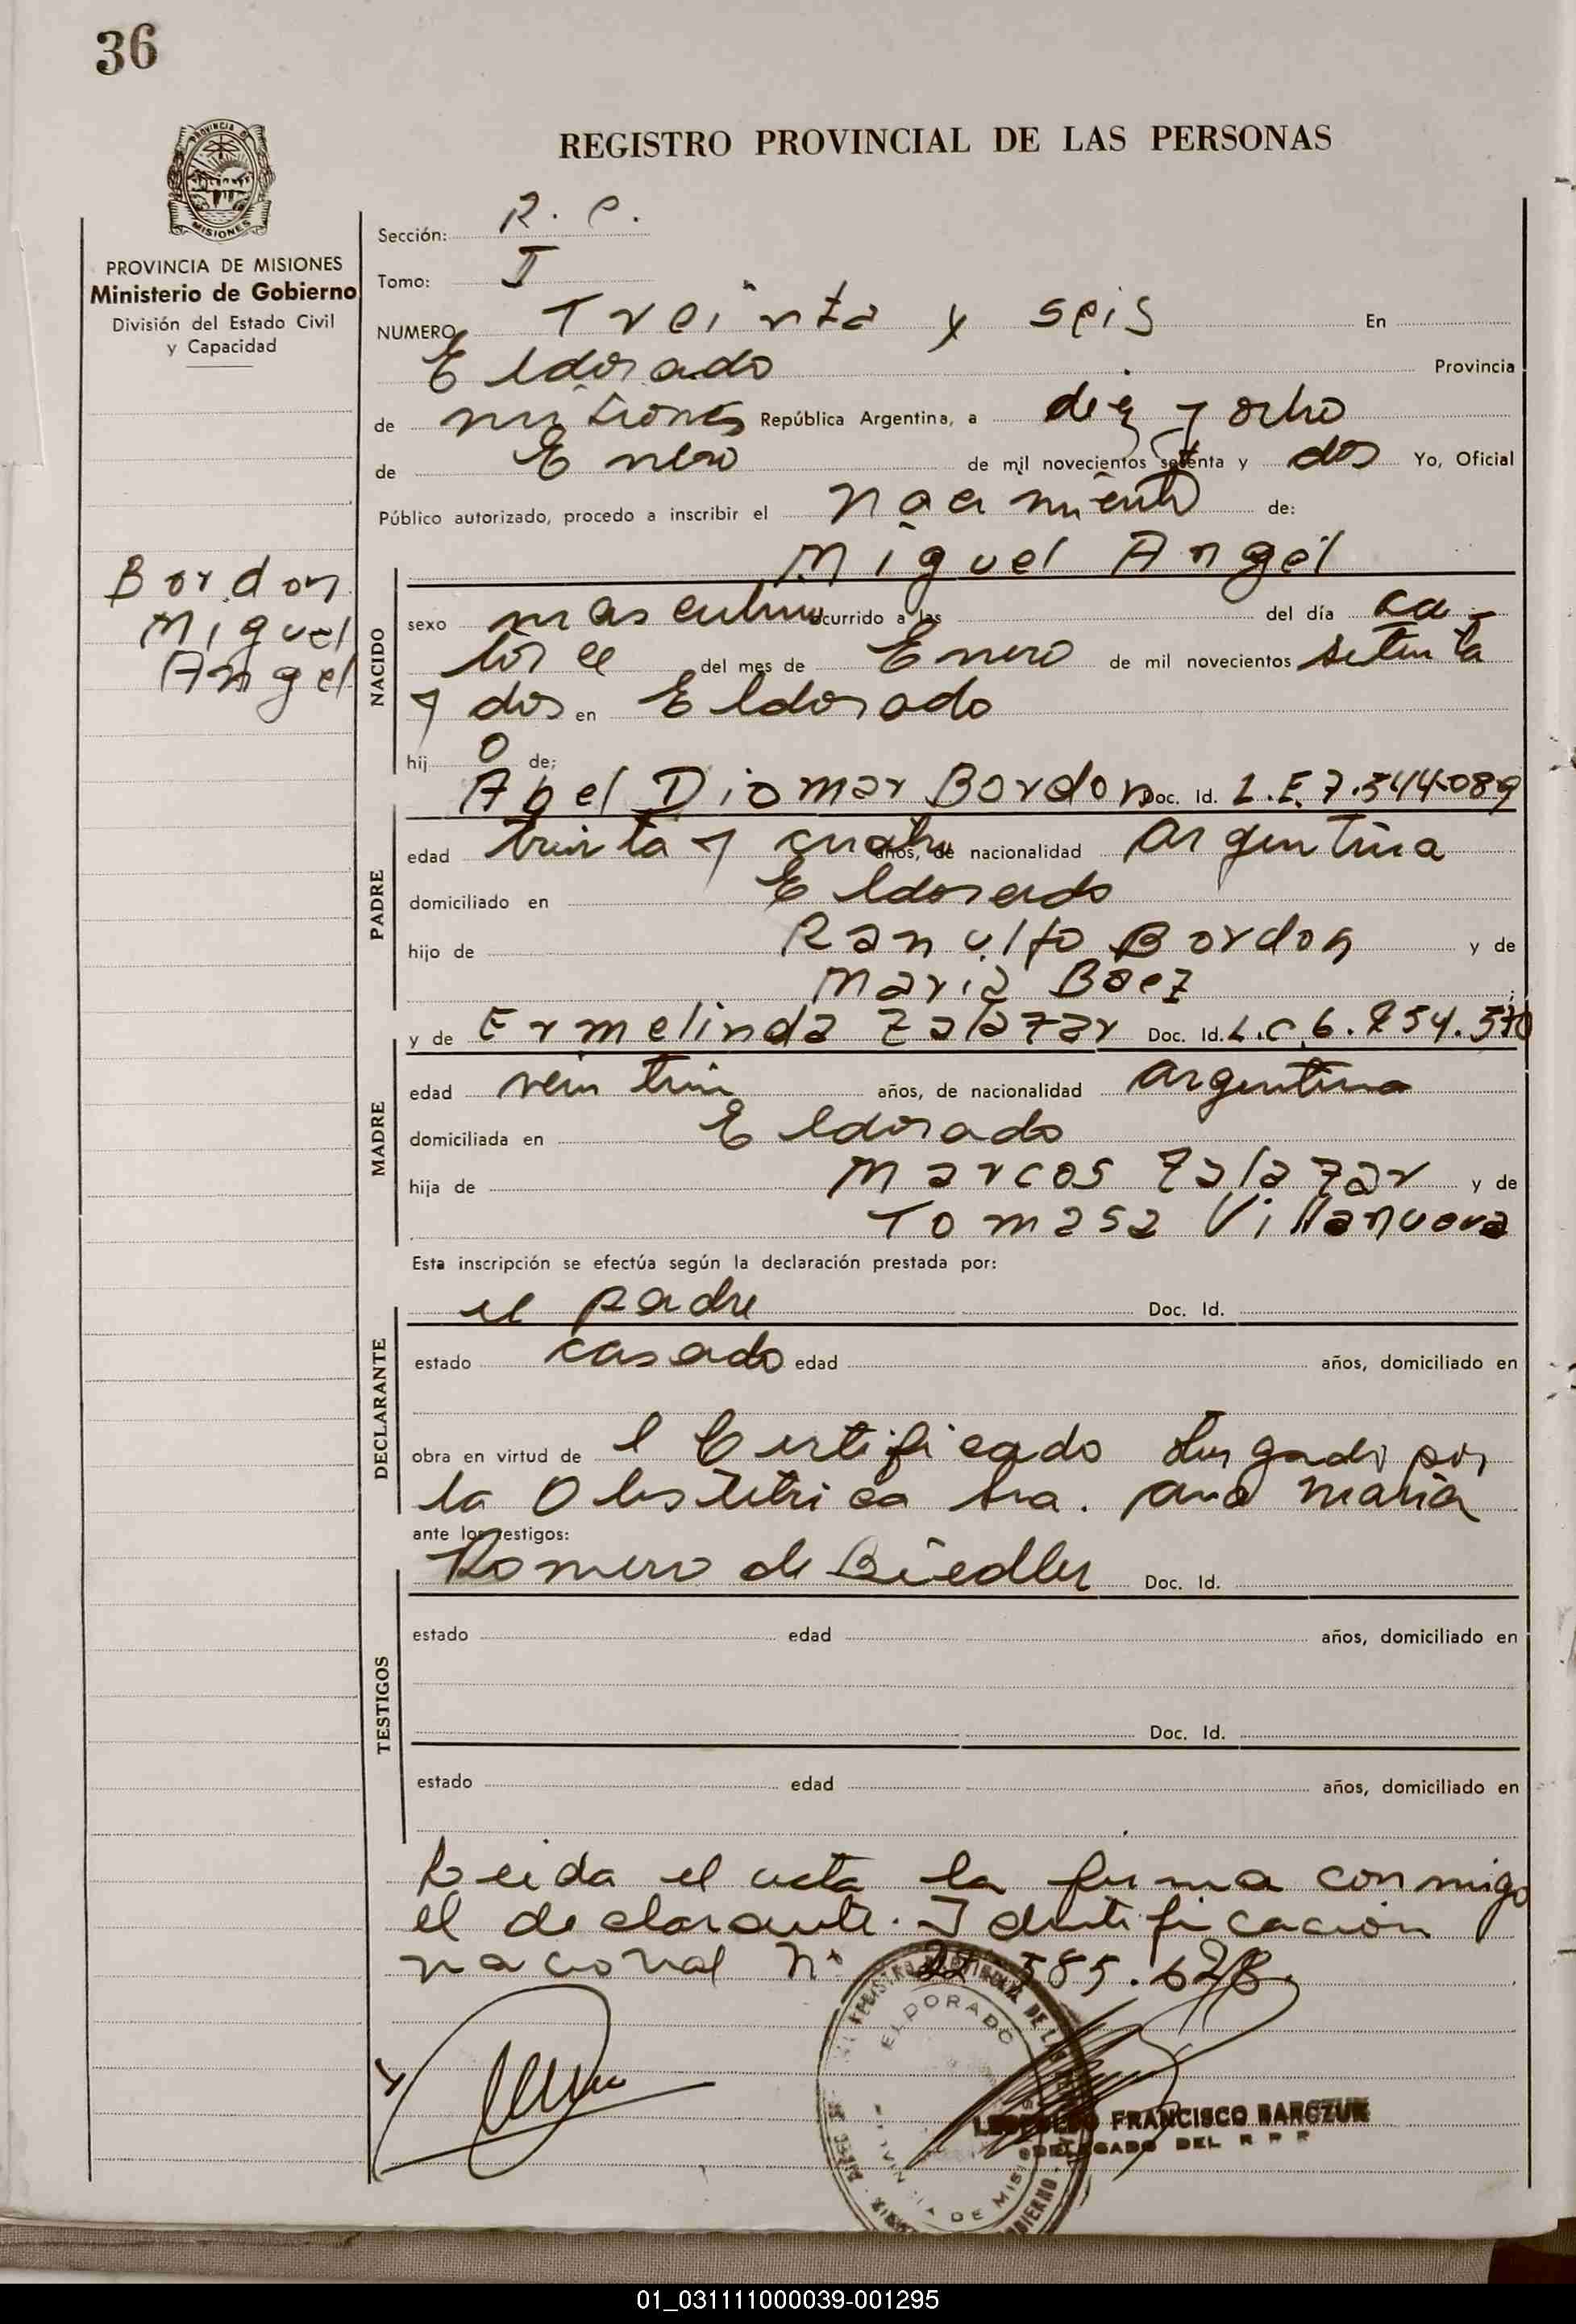 36
REGISTRO PROVINCIAL DE LAS PERSONAS
PROVINCIA DE MISIONES
MISIONES
PROVINCIA DE MISIONES
Ministerio de Gobierno
División del Estado Civil
y Capacidad
Bordon
Miguel
Angel
Sección: R. C.
Tomo: I
NUMERO Treinta y seis En
Eldorado Provincia
de misiones República Argentina, a diez y ocho
de Enero de mil novecientos setenta y dos Yo, Oficial
Público autorizado, procedo a inscribir el nacimiento de:
Miguel Angel
NACIDO
sexo masculino ocurrido a las del día ca-
torce del mes de Enero de mil novecientos setenta
y dos en Eldorado
hij o de;
Abel Diomar Bordon Doc. Id. L.E. 7.544.089
PADRE
edad treinta y cuatro años, de nacionalidad argentina
domiciliado en Eldorado
hijo de Ranulfo Bordon y de
Maria Baez ;
y de Ermelinda Zalazar Doc. Id. L.C 6.254.570
MADRE
edad años, de nacionalidad argentina
domiciliada en Eldorado
hija de Marcos Zalazar y de
Tomasa Villanueva
Esta inscripción se efectúa según la declaración prestada por:
el padre Doc. Id.
DECLARANTE
estado casado edad años, domiciliado en
obra en virtud de l Certificado otorgado por
la Obstetrica Sra. Ana Maria
ante los testigos:
Romero de Biedler Doc. Id.
TESTIGOS
estado edad años, domiciliado en
Doc. Id.
estado edad años, domiciliado en
Leida el acta la firma conmigo
el declarante. Identificación
nacional Nº 22.585.628.
ELDORADO
LEOPOLDO FRANCISCO BARCZUK
DELEGADO DEL R P P
01_031111000039-001295